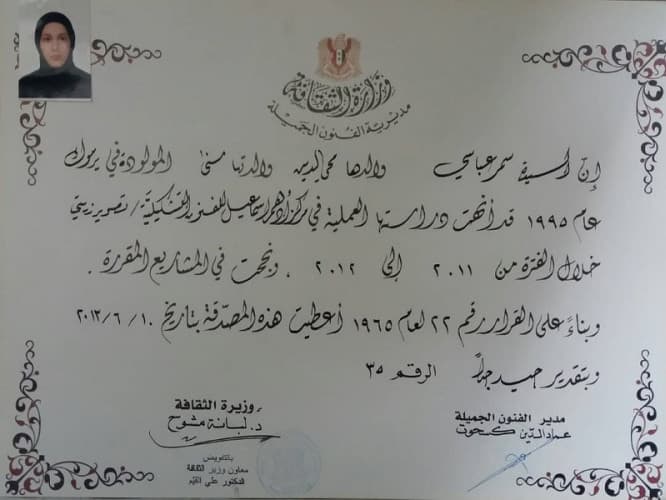 وزارة الثقافة
مديرية الفنون الجميلة
إن السيدة سمر عباسي والدها محي الدين والدتها منى المولودة في يرموك
عام ١٩٩٥ قد أنهت دراستها العملية في مركز أدهم اسماعيل للفنون التشكيلية / تصوير زيتي
خلال الفترة من ٢٠١١ إلى ٢٠١٢ ، ونجحت في المشاريع المقررة .
وبناءً على القرار رقم ٢٢ لعام ١٩٦٥ أعطيت هذه المصدّقة بتاريخ ١٠ / ٦ / ٢٠١٣
وبتقدير جيد جداً الرقم ٣٥
مدير الفنون الجميلة
عماد الدين كسحوت
وزيرة الثقافة
د. لبانة مشوح
بالتفويض
معاون وزير الثقافة
الدكتور علي القيم